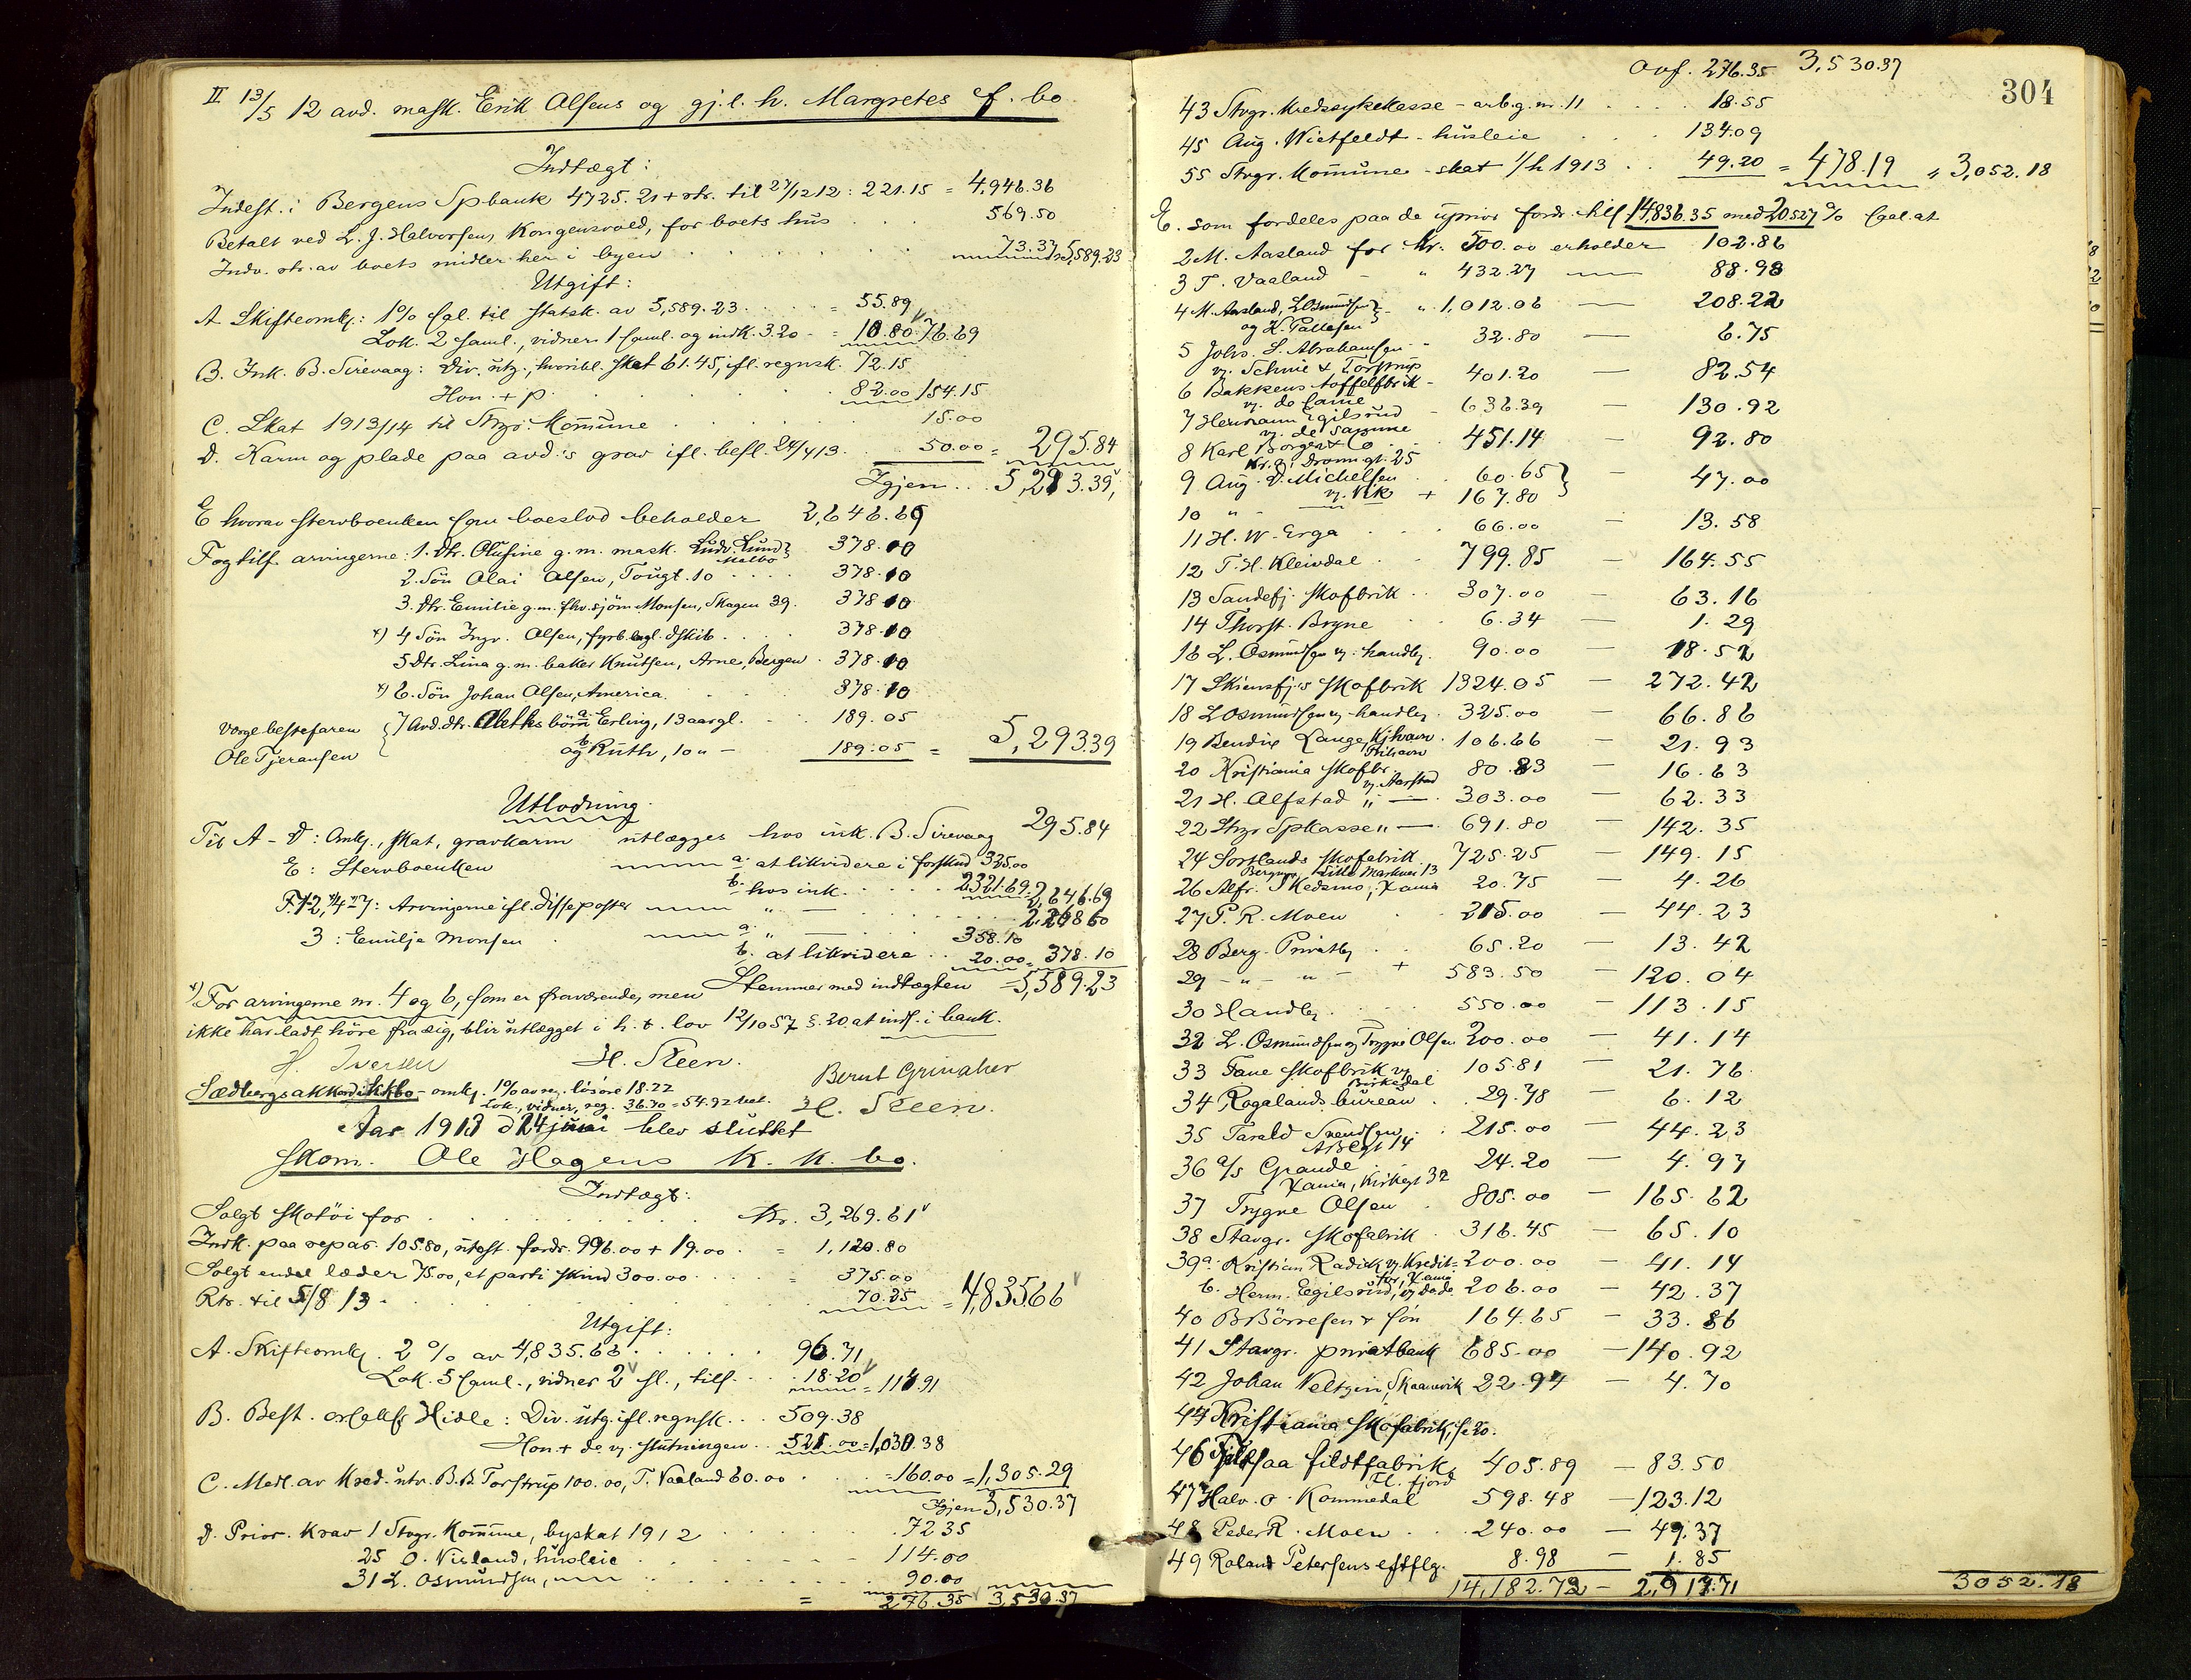 II 13/5 12 avd. mask. Erik Olsens og gj. l. h. Margretes ef. bo
Indtægt:
Indest. i Bergens Spbank 4725.21 + rtr. til 27/12 12: 221.15 = 4,946.36
Betalt ved L. J. Halvorsen, Kongensvold, for boets hus . . . 569.50
Indv. rtr. av boets midler her i byen . . . 73.37 = 5,589.23
Utgift:
A. Skifteomk.: 1% sal. til statsk. av 5,589.23 . . = 55.89
Lok. 2 saml., vidner 1 saml. og indk. 3.20 = 10.80 = 76.69
B. Ink. B. Sirevaag: Div. utg., hvoribl. skat 61.45, ifl. regnsk. 72.15
Hon. + p. . . . 82.00 154.15
C. Skat 1913/14 til Stvgr. Kommune . . . 15.00
D. Karm og plade paa avd.'s grav ifl. besl. 24/4 13 . . 50.00 = 295.84
Igjen . . . 5,293.39
E hvorav stervboenken som boeslod beholder 2,646.69
F og tilf. arvingerne: 1. Dtr. Olufine g. m. mask. Ludv. Lund 378.10
2. Søn Olai Olsen, Tougt. 10 . . . 378.10
3. Dtr. Emilie g. m. fhv. sjøm. Monsen, Skagen 39. 378.10
x) 4 Søn Ingv. Olsen, fyrb. engl. dskib . . . 378.10
5 Dtr. Lina g. m. baker Knutsen, Arne, Bergen . 378.10
x) 6. Søn Johan Olsen, America . . . 378.10
Verge bestefaren { 7 Avd. dtr. Alethes børn a. Erling, 13 aargl. . . 189.05
Ole Tjeransen og b. Ruth, 10 " — 189.05 = 5,293.39
Utlodning.
Til A - D: Omk., skat, gravkarm utlægges hos ink. B. Sirevaag 295.84
E: Stervboenken a. at likvidere i forskud 325.00
b. hos ink. . . . 2321.69 = 2,646.69
F. 1-2, 4-7: Arvingerne ifl. disse poster " — . . . 2,268.60
3: Emilje Monsen . a. " — . . . 358.10
b. at likvidere . . 20.00 = 378.10
Stemmer med indtægten = 5,589.23
x) For arvingerne nr. 4 og 6, som er fraværende, men
ikke har ladt høre fra sig, blir utlægget i h. t. lov 12/10 57 § 20 at inds. i bank.
H. Iversen H. Steen. Bernt Grinaker
Sædbergs akkordskbo - omk. 1% av reg. løsøre 18.22
Lok., vidner, reg. 36.70 = 54.92 bet. H. Steen.
Aar 1913 d 24 juni blev sluttet
Skom. Ole Hagens K. K. bo.
Indtægt:
Solgt skotøi for . . . Kr. 3,269.61
Indk. paa repar. 105.80, utest. fordr. 996.00 + 19.00 . = 1,120.80
Solgt endel læder 75.00, et parti skind 300.00 . . . = 375.00
Rtr. til 5/8 13 . . . 70.25 = 4,835.66
Utgift:
A. Skifteomk. 2 % av 4,835.66 . . . 96.71
Lok. 5 saml., vidner 2 sl., tilf. . . 18.20 = 114.91
B. Best. Hidle: Div. utg. ifl. regnsk. . . 509.38
Hon. + do v. slutningen . . 521.00 = 1,030.38
C. Medl. av Kred. utv. B. B. Torstrup 100.00, T. Vaaland 60.00 . . = 160.00 = 1,305.29
Igjen 3,530.37
D. Prior. Krav 1 Stvgr. Kommune, byskat 1912 . . . 72.35
25 O. Nisland, husleie . . . 114.00
31 L. Osmundsen, . . . 90.00
= 276.35 3,530.37
304
Ovf. 276.35 3,530.37
43 Stvgr. Kredssykekasse - arb.g. nr. 11 . . . 18.55
45 Aug. Wietfeldt - husleie . . . 134.09
55 Stvgr. Kommune - skat 1/h 1913 . . 49.20 = 478.19 = 3,052.18
E. som fordeles paa de uprior fordr. till 14,836.35 med 20.527 % sal. at
2 M. Aasland for Kr. 500.00 erholder 102.86
3 T. Vaaland — " 432.27 — 88.98
4 M. Aasland, L Osmundsen " 1,012.06 — 208.22
og H. Pallesen
5 Johs. S. Abrahamsen " 32.80 — 6.75
v. Schnie & Torstrup
6 Bakkens toffelfbrik - 401.20 — 82.54
v. do samme
7 Hermann Egilsrud - 636.39 — 130.92
v. de samme
8 Karl Borger & Co . . 451.14 — 92.80
Kr.a, Dramgt. 25
9 Aug. D. Michelsen . 60.65 } — 47.00
10 " — v. Vik + 167.80
11 H. W. Erga . . 66.00 — 13.58
12 T. H. Kleivdal . . 799.85 — 164.55
13 Sandefj. skofbrik . . 307.00 — 63.16
14 Thorst. Bryne . . 6.34 — 1.29
16 L. Osmundsen v. handlb. 90.00 — 18.52
17 Skiensfj.'s skofbrik 1324.05 — 272.42
18 L Osmundsen v. handlb. 325.00 — 66.86
19 Bendix Lange, Kjhavn . 106.66 — 21.93
20 Kristiania skofbr. 80.83 — 16.63
v. Aarstad
21 H. Alfstad " — 303.00 — 62.33
22 Stvgr Spkasse " — 691.80 — 142.35
24 Sortlands skofabrik . 725.25 — 149.15
Bergen, Lille Markvei 13
26 Alfr. Skedsmo, Xania 20.75 — 4.26
27 P. R. Moen . 215.00 — 44.23
28 Berg. Privatb. . . 65.20 — 13.42
29 - " - " - + 583.50 — 120.04
30 Handlb. . . 550.00 — 113.15
32 L. Osmundsen v Trygve Olsen 200.00 — 41.14
33 Fane skofbrik v. 105.81 — 21.76
Birkedal
34 Rogalands bureau . . 29.78 — 6.12
35 Tarald Svendsen . . 215.00 — 44.23
36 a/s Graude . . 24.20 — 4.97
Xania, Kirkegt 32
37 Trygve Olsen . 805.00 — 165.62
38 Stavgr. Skofabrik . 316.45 — 65.10
39 a. Kristian Radick v. Kredit= 200.00 — 41.14
for, Xania
b. Herm. Egilsrud, v. dodo 206.00 — 42.37
40 B Børresen & søn 164.65 — 33.86
41 Stavgr. privatbank 685.00 — 140.92
42 Johan Veltzin, Skaanevik 22.94 — 4.70
44 Kristiania skofabrik, se 20.
46 fildtfabrik, 405.89 — 83.50
Fl. fjord
47 Halv. O. Kommedal 598.48 — 123.12
48 Peder R. Moen . . 240.00 — 49.37
49 Roland Petersens eftflg. 8.98 — 1.85
14,182.72 — 2,917.71 3052.18